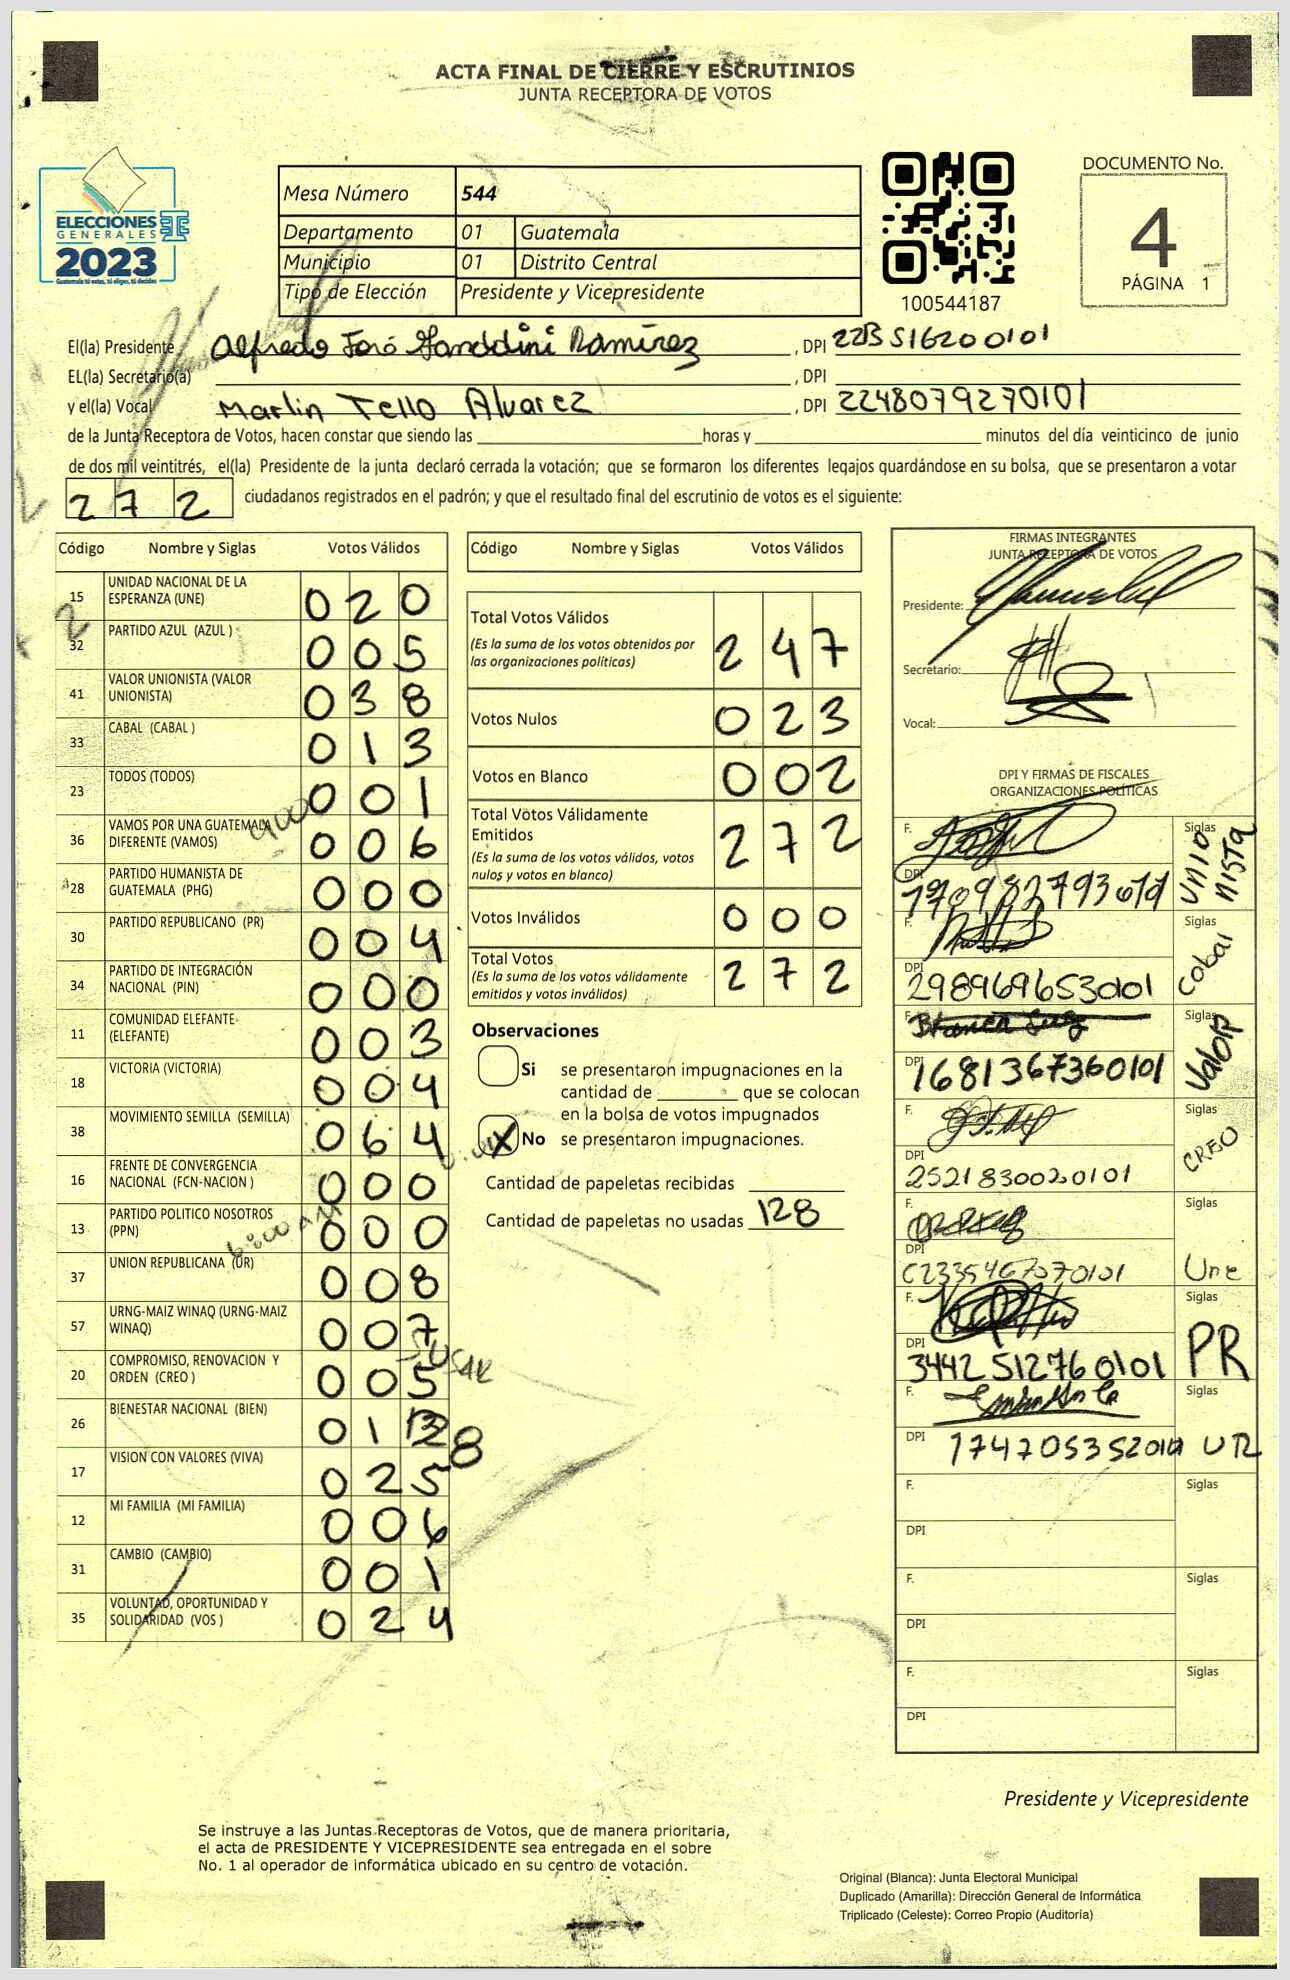 ACTA FINAL DE CIERRE Y ESCRUTINIOS
JUNTA RECEPTORA DE VOTOS
ELECCIONES
GENERALES
2023
Guatemala tú votas, tú eliges, tú decides
Mesa Número 544
Departamento 01 Guatemala
Municipio 01 Distrito Central
Tipo de Elección Presidente y Vicepresidente
100544187
DOCUMENTO No.
4
PÁGINA 1
El(la) Presidente Alfredo José Ramírez , DPI
EL(la) Secretario(a) , DPI
y el(la) Vocal Marlin Tello Alvarez , DPI 2248079270101
de la Junta Receptora de Votos, hacen constar que siendo las horas y minutos del día veinticinco de junio
de dos mil veintitrés, el(la) Presidente de la junta declaró cerrada la votación; que se formaron los diferentes legajos guardándose en su bolsa, que se presentaron a votar
272 ciudadanos registrados en el padrón; y que el resultado final del escrutinio de votos es el siguiente:
Código Nombre y Siglas Votos Válidos
15 UNIDAD NACIONAL DE LA ESPERANZA (UNE) 020
32 PARTIDO AZUL (AZUL ) 005
41 VALOR UNIONISTA (VALOR UNIONISTA) 038
33 CABAL (CABAL ) 013
23 TODOS (TODOS) 001
36 VAMOS POR UNA GUATEMALA DIFERENTE (VAMOS) 006
28 PARTIDO HUMANISTA DE GUATEMALA (PHG) 000
30 PARTIDO REPUBLICANO (PR) 004
34 PARTIDO DE INTEGRACIÓN NACIONAL (PIN) 000
11 COMUNIDAD ELEFANTE (ELEFANTE) 003
18 VICTORIA (VICTORIA) 004
38 MOVIMIENTO SEMILLA (SEMILLA) 064
16 FRENTE DE CONVERGENCIA NACIONAL (FCN-NACION ) 000
13 PARTIDO POLITICO NOSOTROS (PPN) 000
37 UNION REPUBLICANA (UR) 008
57 URNG-MAIZ WINAQ (URNG-MAIZ WINAQ) 007
20 COMPROMISO, RENOVACION Y ORDEN (CREO ) 005
26 BIENESTAR NACIONAL (BIEN) 01 8
17 VISION CON VALORES (VIVA) 025
12 MI FAMILIA (MI FAMILIA) 006
31 CAMBIO (CAMBIO) 001
35 VOLUNTAD, OPORTUNIDAD Y SOLIDARIDAD (VOS ) 024
Código Nombre y Siglas Votos Válidos
Total Votos Válidos 247
(Es la suma de los votos obtenidos por las organizaciones políticas)
Votos Nulos 023
Votos en Blanco 002
Total Votos Válidamente Emitidos 272
(Es la suma de los votos válidos, votos nulos y votos en blanco)
Votos Inválidos 000
Total Votos 272
(Es la suma de los votos válidamente emitidos y votos inválidos)
Observaciones
Si se presentaron impugnaciones en la
cantidad de ________ que se colocan
en la bolsa de votos impugnados
X No se presentaron impugnaciones.
Cantidad de papeletas recibidas
Cantidad de papeletas no usadas 128
FIRMAS INTEGRANTES
JUNTA RECEPTORA DE VOTOS
Presidente:
Secretario:
Vocal:
DPI Y FIRMAS DE FISCALES
ORGANIZACIONES POLÍTICAS
F. Siglas UNIONISTA
DPI
F. Siglas Cabal
DPI 2989696530101
F. Siglas Valor
DPI 1681367360101
F. Siglas CREO
DPI 2521830020101
F. Siglas Une
DPI
F. Siglas PR
DPI 3442512760101
F. Siglas UR
DPI
F. Siglas
DPI
F. Siglas
DPI
F. Siglas
DPI
Presidente y Vicepresidente
Se instruye a las Juntas Receptoras de Votos, que de manera prioritaria,
el acta de PRESIDENTE Y VICEPRESIDENTE sea entregada en el sobre
No. 1 al operador de informática ubicado en su centro de votación.
Original (Blanca): Junta Electoral Municipal
Duplicado (Amarilla): Dirección General de Informática
Triplicado (Celeste): Correo Propio (Auditoría)